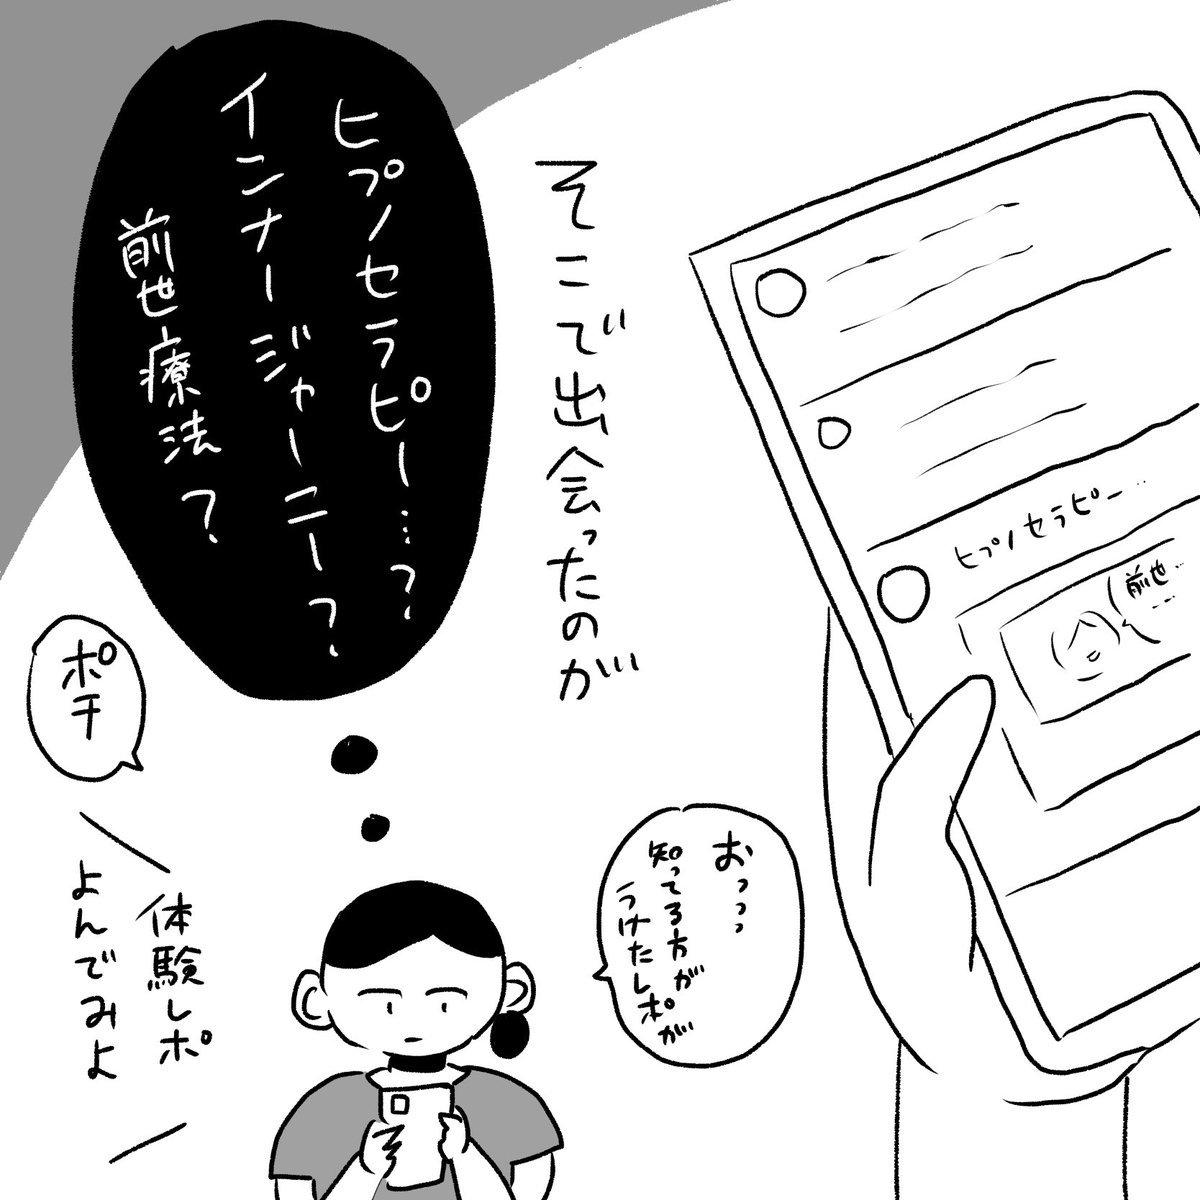 そこで出会ったのが
ヒプノセラピー…？
インナージャーニー？
前世療法？
ヒプノセラピー…
前世…
おっっっ
知ってる方が
うけたレポが
ポチ
体験レポ
よんでみよ